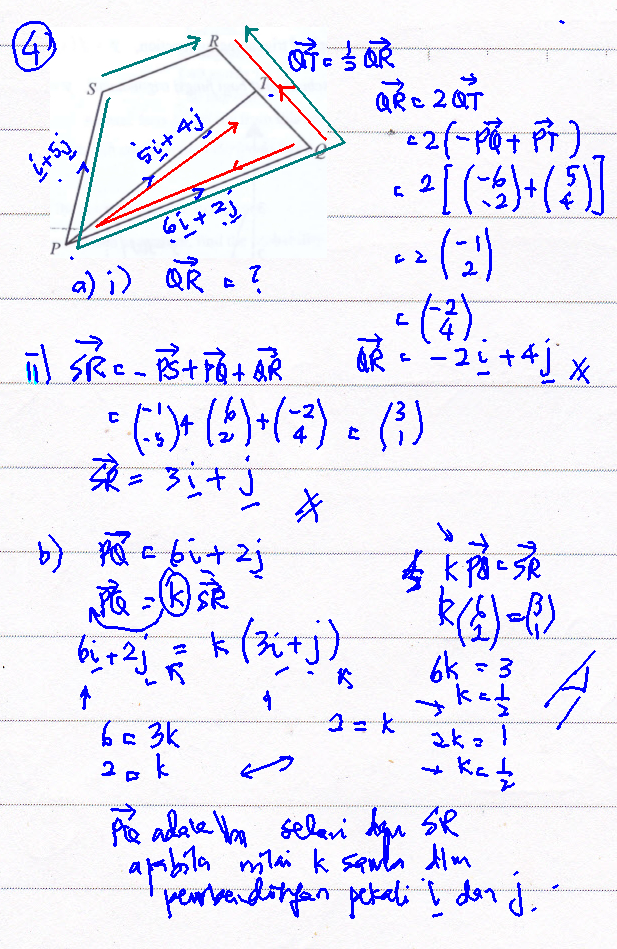 ④
R
S
T
Q
P
i + 5j
5i + 4j
6i + 2j
QT = ½ QR
QR = 2QT
= 2(-PQ + PT)
= 2[(-6 -2) + (5 4)]
= 2(-1 2)
= (-2 4)
QR = -2i + 4j
a) i) QR = ?
ii) SR = -PS + PQ + QR
= (-1 -5) + (6 2) + (-2 4) = (3 1)
SR = 3i + j
b) PQ = 6i + 2j
PQ = k SR
6i + 2j = k(3i + j)
6 = 3k
2 = k
2 = k
k PQ = SR
k(6 2) = (3 1)
6k = 3
→ k = ½
2k = 1
→ k = ½
PQ adalah selari dgn SR
apabila nilai k sama dlm
pembandingan pekali i dan j.